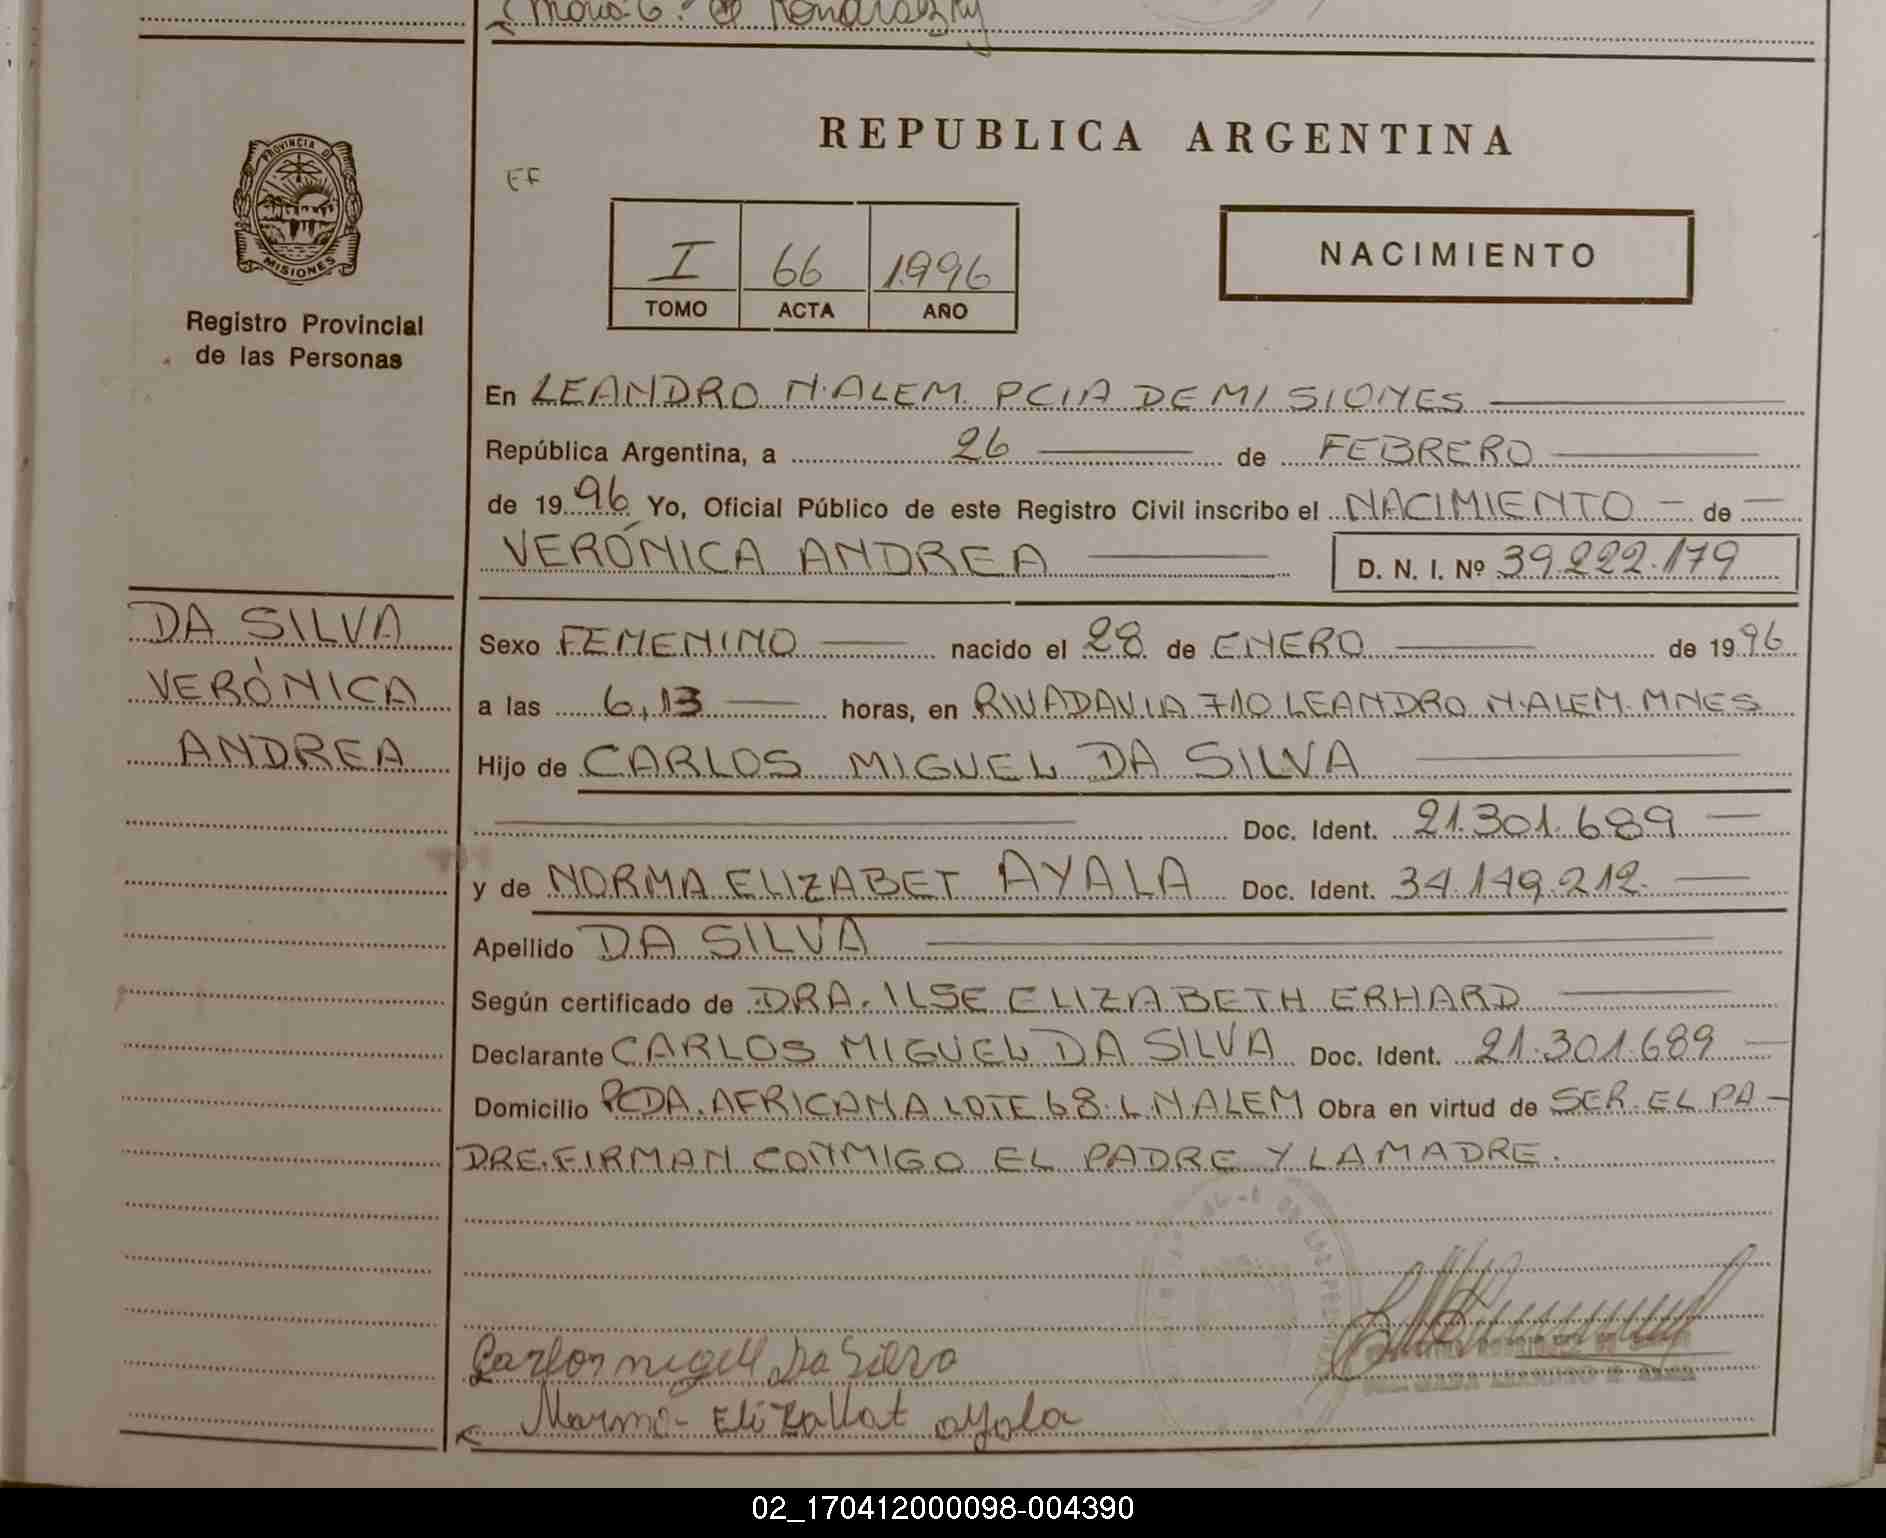 REPUBLICA ARGENTINA
EF
PROVINCIA DE
MISIONES
Registro Provincial
de las Personas
I 66 1996
TOMO ACTA AÑO
NACIMIENTO
En LEANDRO N.ALEM PCIA DE MISIONES
República Argentina, a 26 de FEBRERO
de 1996 Yo, Oficial Público de este Registro Civil inscribo el NACIMIENTO - de -
VERÓNICA ANDREA D. N. I. Nº 39.222.179
DA SILVA
VERÓNICA
ANDREA
Sexo FEMENINO nacido el 28 de ENERO de 1996
a las 6,13 horas, en RIVADAVIA 710 LEANDRO N.ALEM. MNES
Hijo de CARLOS MIGUEL DA SILVA
Doc. Ident. 21.301.689
y de NORMA ELIZABET AYALA Doc. Ident. 34.149.212.
Apellido DA SILVA
Según certificado de DRA. ILSE ELIZABETH ERHARD
Declarante CARLOS MIGUEL DA SILVA Doc. Ident. 21.301.689
Domicilio PCDA. AFRICANA LOTE 68. L.N ALEM Obra en virtud de SER EL PA-
DRE. FIRMAN CONMIGO EL PADRE Y LA MADRE.
Da Silva
ayala
02_170412000098-004390